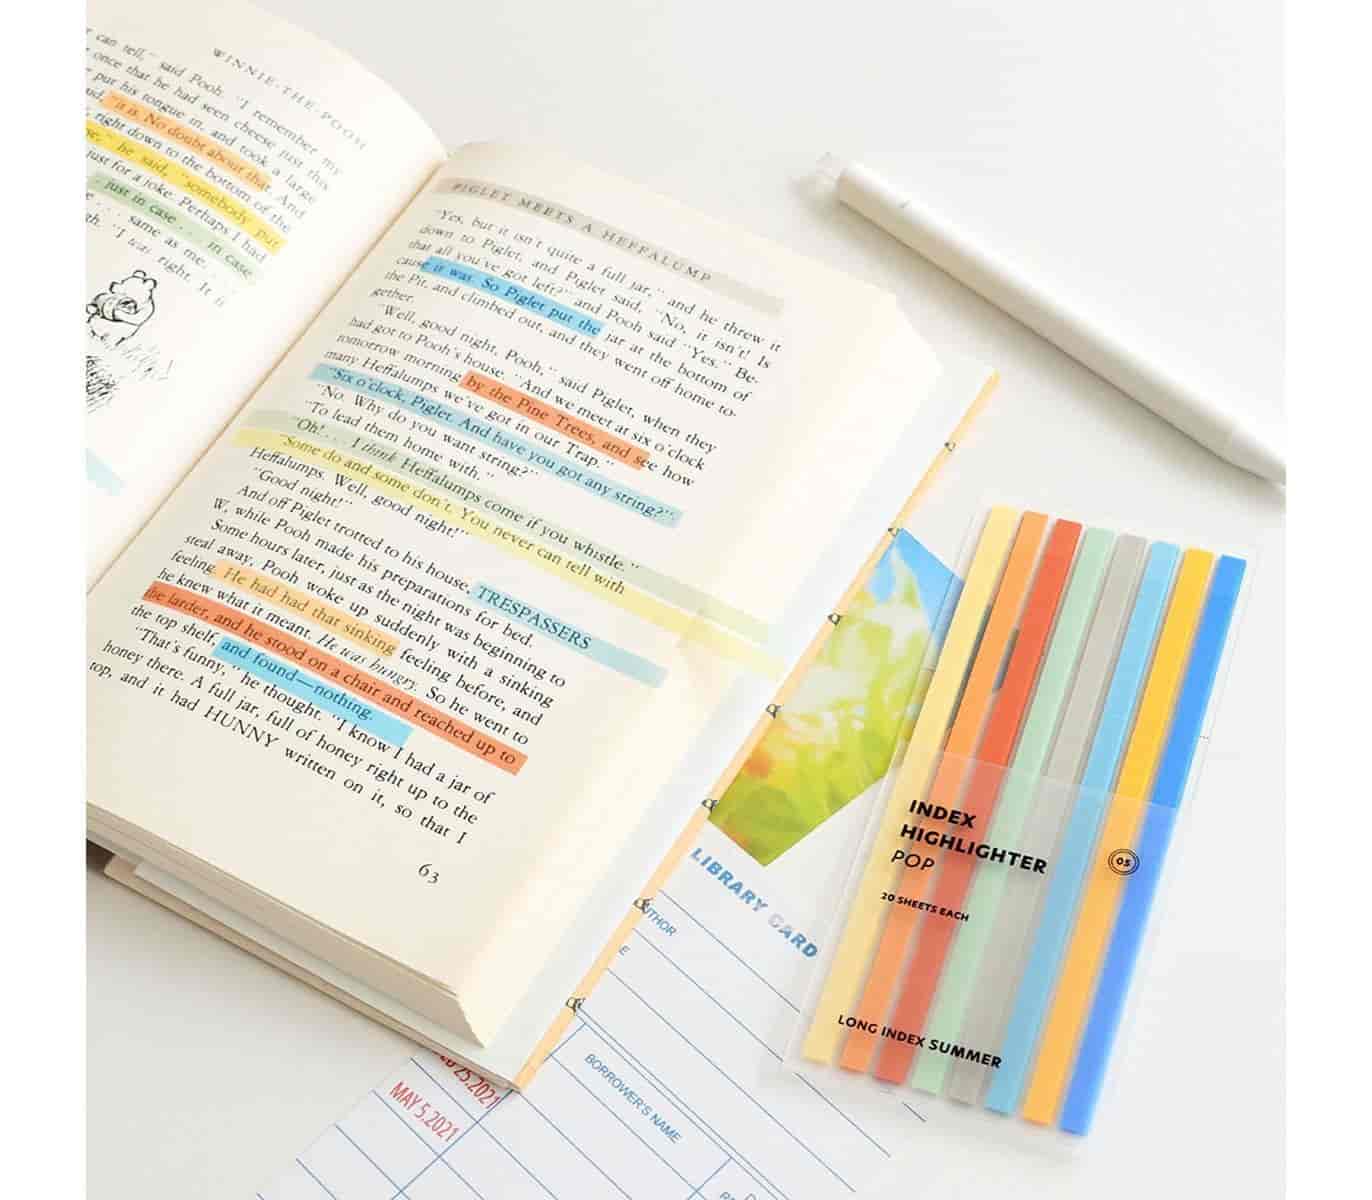 WINNIE-THE-POOH
can tell," said Pooh. "I remember my
once that he had seen cheese just this
put his tongue in, and took a large
"it is. No doubt about that. And
right down to the bottom of the
he said, "somebody put
just for a joke. Perhaps I had
just in case . . . in case
. . . same as me.
"I was right. It is
PIGLET MEETS A HEFFALUMP
"Yes, but it isn't quite a full jar," and he threw it
down to Piglet, and Piglet said, "No, it isn't! Is
that all you've got left?" and Pooh said "Yes." Be-
cause it was. So Piglet put the jar at the bottom of
the Pit, and climbed out, and they went off home to-
gether.
"Well, good night, Pooh," said Piglet, when they
had got to Pooh's house. "And we meet at six o'clock
tomorrow morning by the Pine Trees, and see how
many Heffalumps we've got in our Trap."
"Six o'clock, Piglet. And have you got any string?"
"No. Why do you want string?"
"To lead them home with."
"Oh! . . . I think Heffalumps come if you whistle."
"Some do and some don't. You never can tell with
Heffalumps. Well, good night!"
"Good night!"
And off Piglet trotted to his house, TRESPASSERS
W, while Pooh made his preparations for bed.
Some hours later, just as the night was beginning to
steal away, Pooh woke up suddenly with a sinking
feeling. He had had that sinking feeling before, and
he knew what it meant. He was hungry. So he went to
the larder, and he stood on a chair and reached up to
the top shelf, and found—nothing.
"That's funny," he thought. "I know I had a jar of
honey there. A full jar, full of honey right up to the
top, and it had HUNNY written on it, so that I
63
INDEX
HIGHLIGHTER
POP
05
20 SHEETS EACH
LONG INDEX SUMMER
LIBRARY CARD
BORROWER'S NAME
25,2021
MAY 5,2021